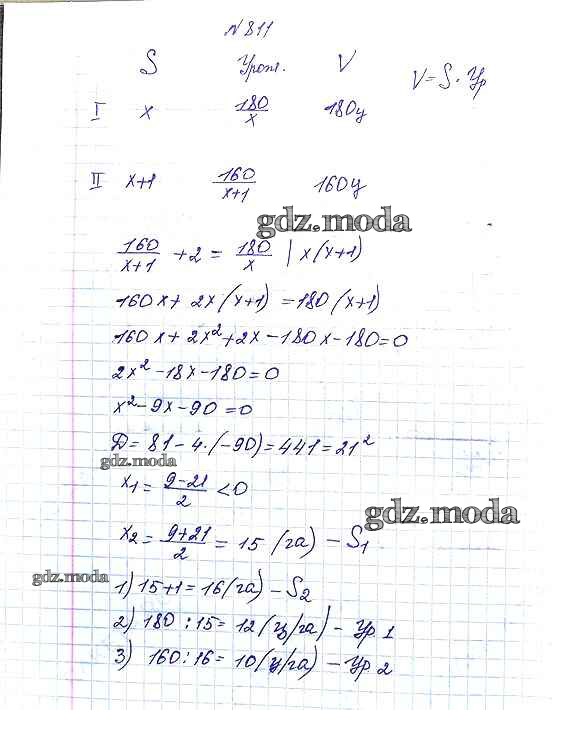 N 811
S Урож. V V = S · Ур
I x 180/x 180ц
II x+1 160/(x+1) 160ц
gdz.moda
160/(x+1) + 2 = 180/x | x(x+1)
160x + 2x(x+1) = 180(x+1)
160x + 2x² + 2x - 180x - 180 = 0
2x² - 18x - 180 = 0
x² - 9x - 90 = 0
Д = 81 - 4·(-90) = 441 = 21²
gdz.moda
x₁ = (9-21)/2 < 0
gdz.moda
x₂ = (9+21)/2 = 15 (га) - S₁
gdz.moda
1) 15+1 = 16 (га) - S₂
2) 180 : 15 = 12 (ц/га) - Ур 1
3) 160 : 16 = 10 (ц/га) - Ур 2